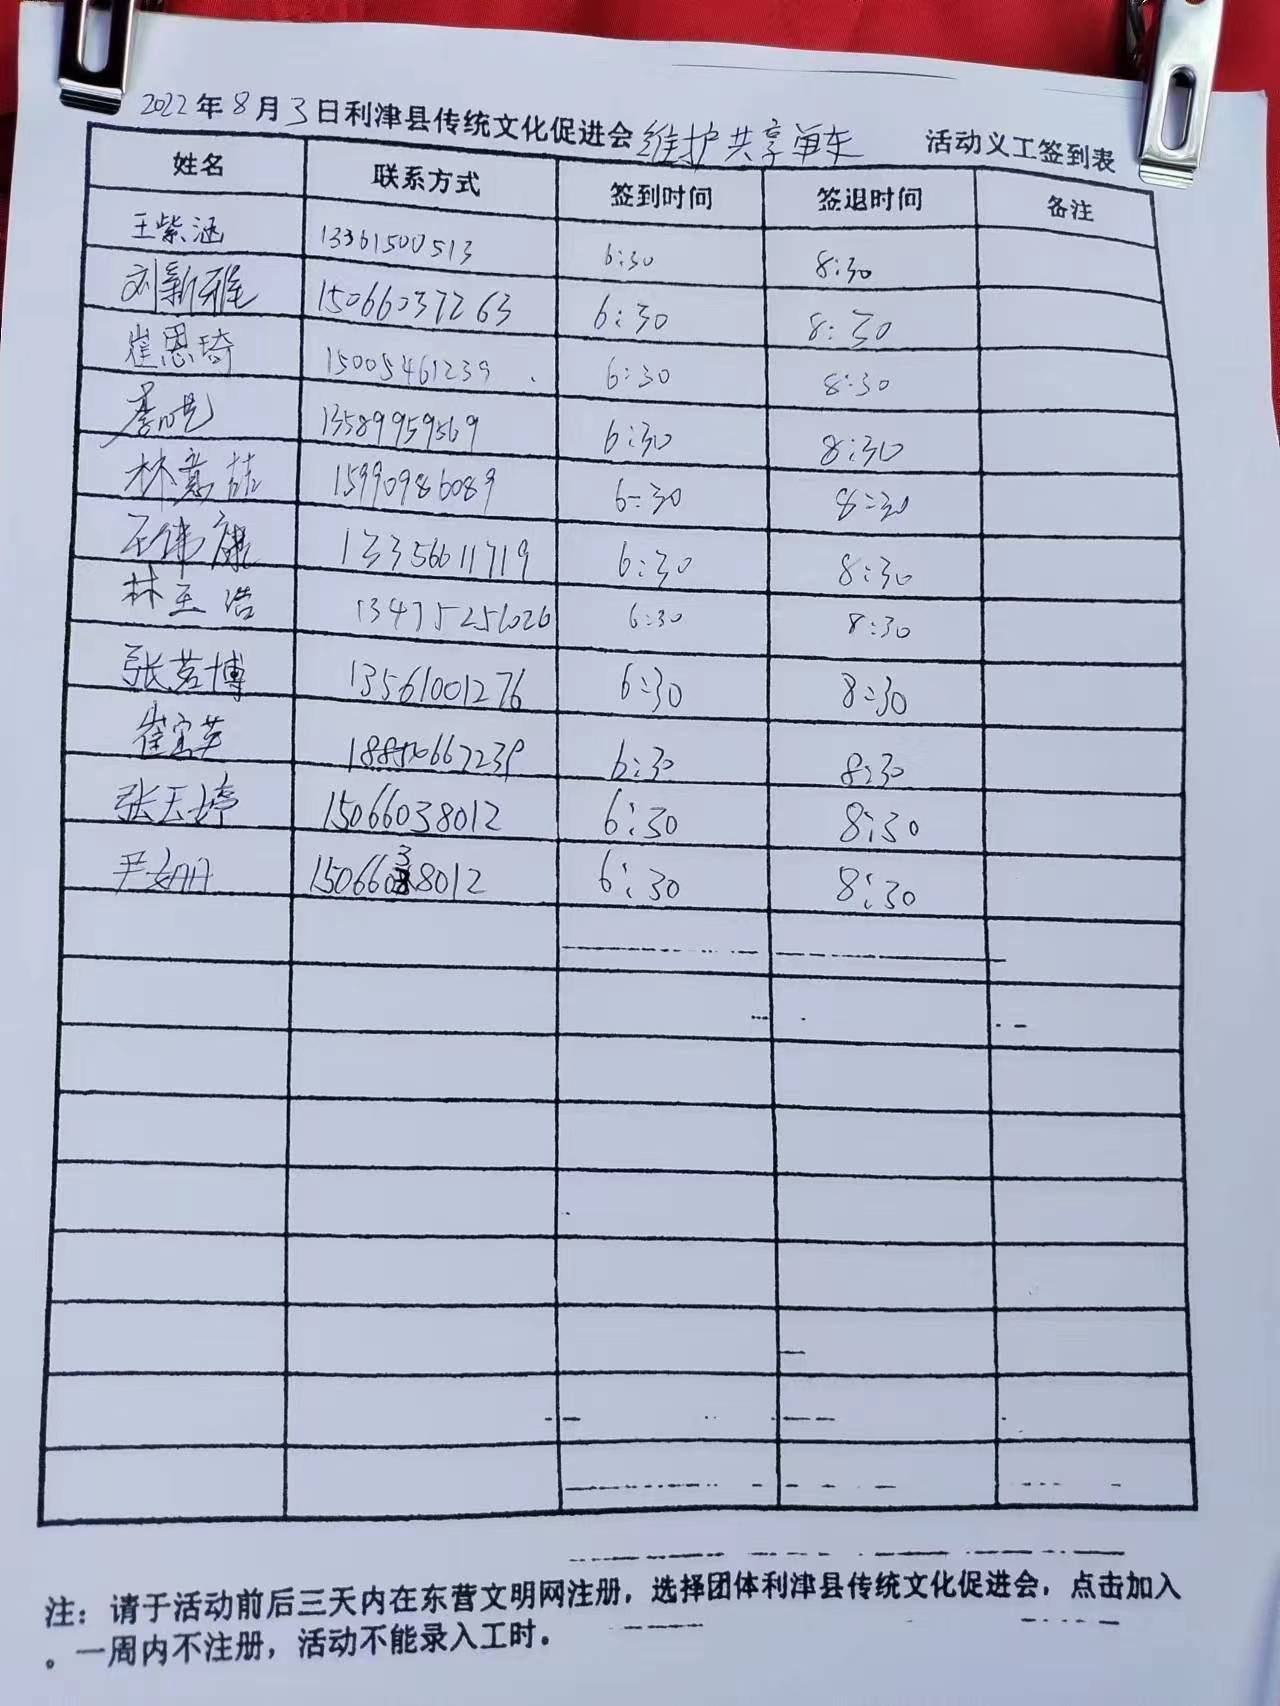 2022年8月3日利津县传统文化促进会维护共享单车 活动义工签到表
姓名 联系方式 签到时间 签退时间 备注
王紫涵 13361500513 6:30 8:30
刘新雅 15066037263 6:30 8:30
崔恩琦 15005461239 6:30 8:30
13589959569 6:30 8:30
林 15990986089 6:30 8:30
王伟康 13356611719 6:30 8:30
林 浩 13475256026 6:30 8:30
张茗博 13561001276 6:30 8:30
崔 6:30 8:30
张玉婷 15066038012 6:30 8:30
尹 15066038012 6:30 8:30
注：请于活动前后三天内在东营文明网注册，选择团体利津县传统文化促进会，点击加入
。一周内不注册，活动不能录入工时。